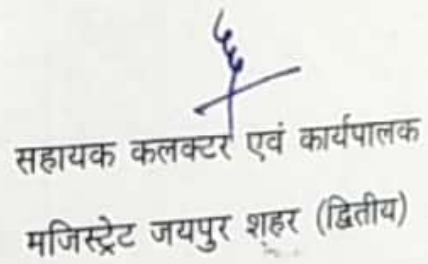 सहायक कलक्टर एवं कार्यपालक
मजिस्ट्रेट जयपुर शहर (द्वितीय)